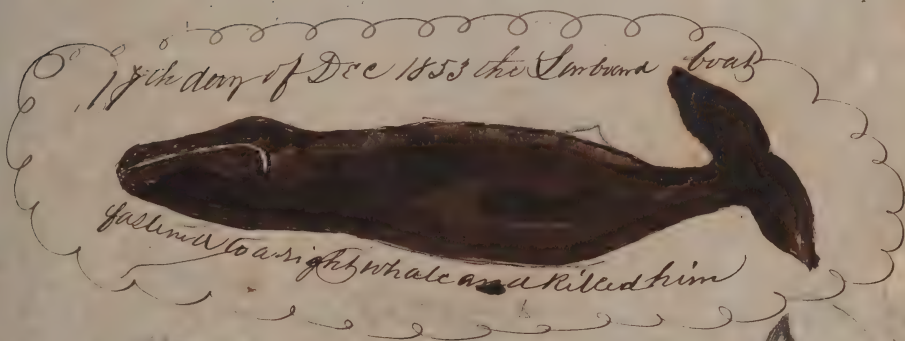 18th day of Dec 1853 the Larboard boat
fastened to a right whale and killed him